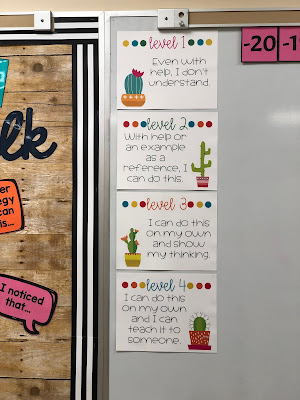 level 1
Even with
help, I don't
understand.
level 2
With help or
an example
as a
reference, I
can do this.
level 3
I can do this
on my own
and show
my thinking.
level 4
I can do this
on my own
and I can
teach it to
someone.
-20
lk
can
is...
I noticed
that...